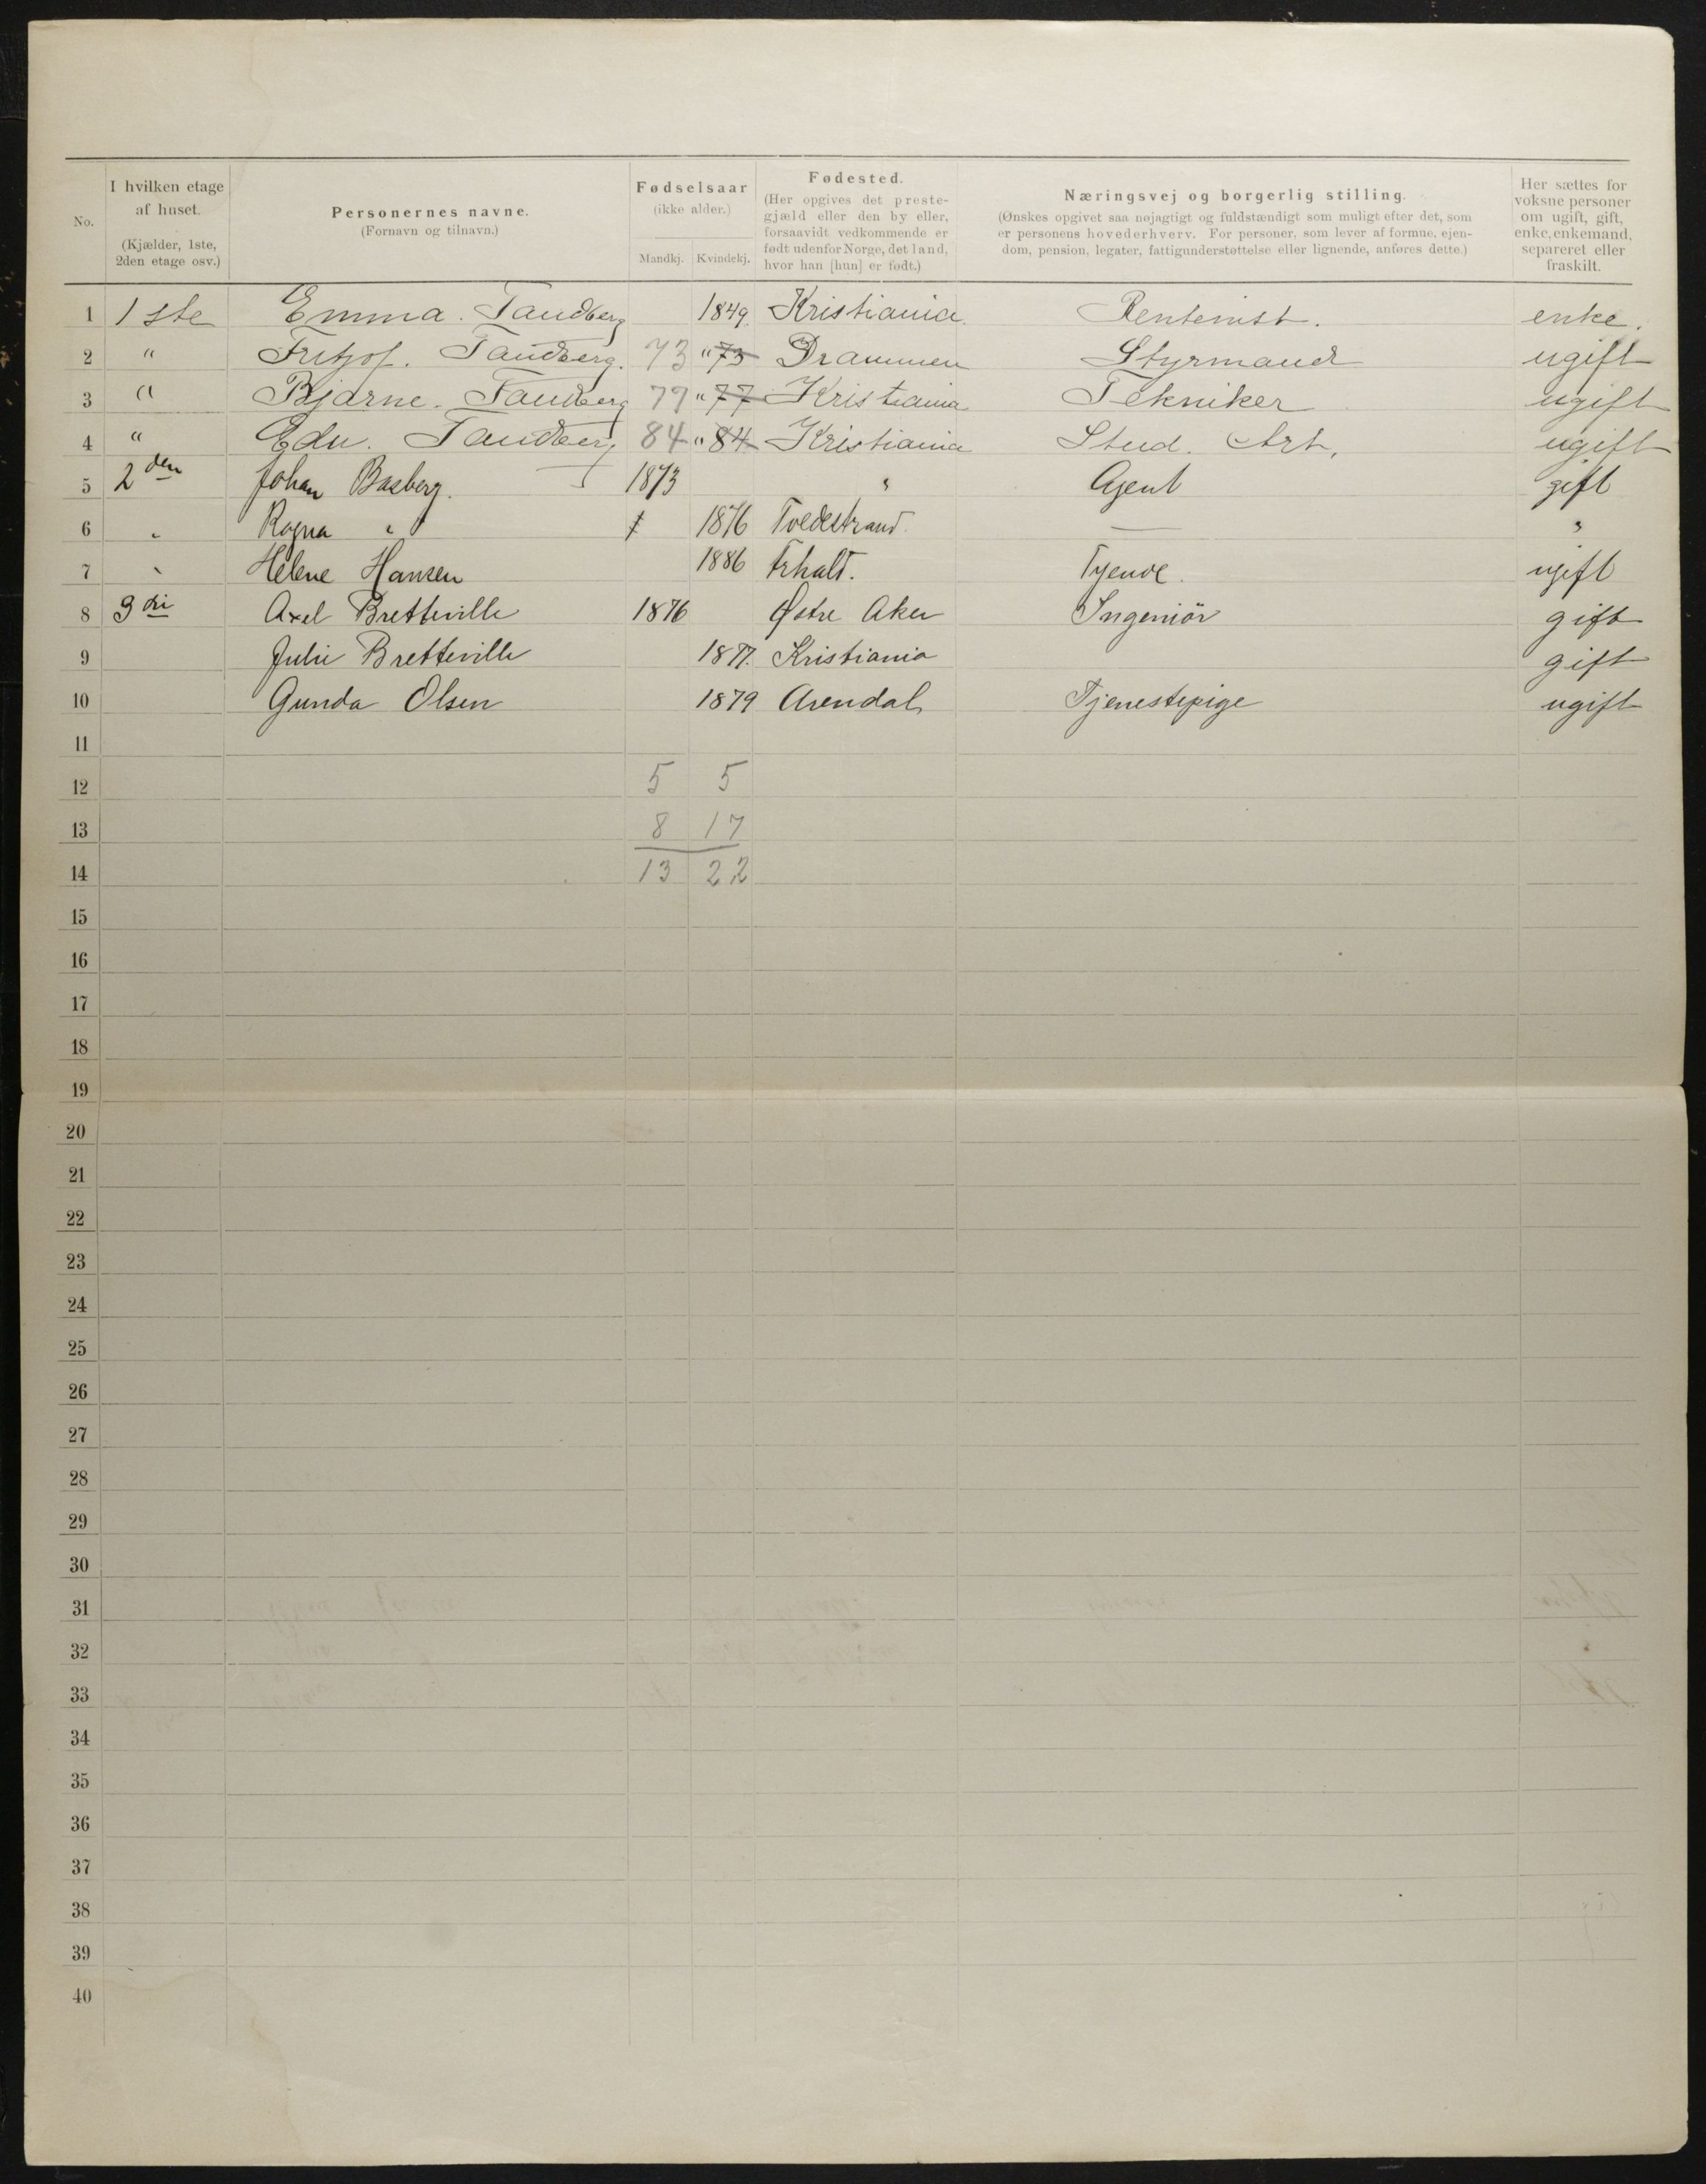 No.
I hvilken etage af huset.
(Kjælder, 1ste, 2den etage osv.)
Personernes navne.
(Fornavn og tilnavn.)
Fødselsaar
(ikke alder.)
Mandkj. Kvindekj.
Fødested.
(Her opgives det prestegjæld eller den by eller, forsaavidt vedkommende er født udenfor Norge, det land, hvor han [hun] er født.)
Næringsvej og borgerlig stilling.
(Ønskes opgivet saa nøjagtigt og fuldstændigt som muligt efter det, som er personens hovederhverv. For personer, som lever af formue, ejendom, pension, legater, fattigunderstøttelse eller lignende, anføres dette.)
Her sættes for voksne personer om ugift, gift, enke, enkemand, separeret eller fraskilt.
1 1ste Emma. Tandberg 1849. Kristiania. Rentenist. enke.
2 " Fritjof. Tandberg. 73 "73 Drammen Styrmand ugift
3 " Bjarne. Tandberg 77 "77 Kristiania Tekniker ugift
4 " Edv. Tandberg 84 "84 Kristiania Stud. Art, ugift
5 2den Johan Basberg. 1873 " Agent gift
6 " Ragna " 1876 Tvedestrand. — "
7 " Helene Hansen 1886 Tyende. ugift
8 3di Axel Bretteville 1876 Østre Aker Ingeniör gift
9 Julie Bretteville 1877. Kristiania gift
10 Gunda Olsen 1879 Arendal Tjenestepige ugift
11
12 5 5
13 8 17
14 13 22
15
16
17
18
19
20
21
22
23
24
25
26
27
28
29
30
31
32
33
34
35
36
37
38
39
40